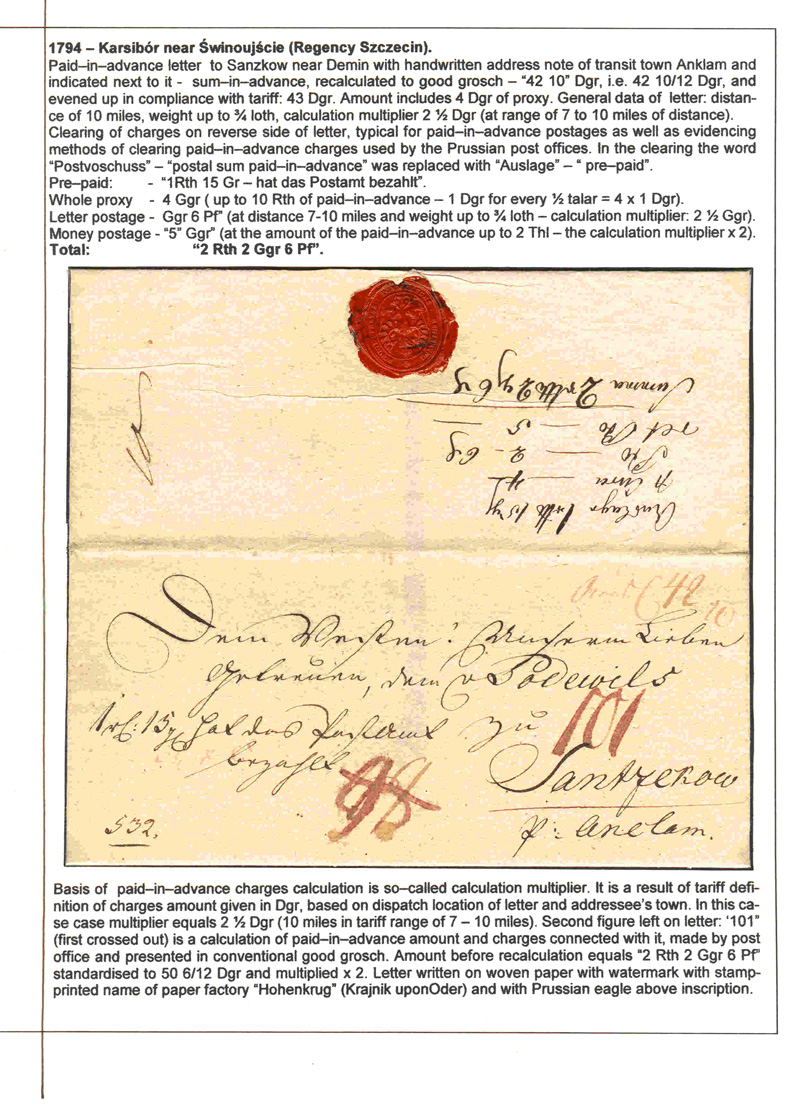 1794 – Karsibór near Świnoujście (Regency Szczecin).
Paid–in–advance letter to Sanzkow near Demin with handwritten address note of transit town Anklam and
indicated next to it - sum–in–advance, recalculated to good grosch – “42 10” Dgr, i.e. 42 10/12 Dgr, and
evened up in compliance with tariff: 43 Dgr. Amount includes 4 Dgr of proxy. General data of letter: distan-
ce of 10 miles, weight up to ¾ loth, calculation multiplier 2 ½ Dgr (at range of 7 to 10 miles of distance).
Clearing of charges on reverse side of letter, typical for paid–in–advance postages as well as evidencing
methods of clearing paid–in–advance charges used by the Prussian post offices. In the clearing the word
“Postvoschuss” – “postal sum paid–in–advance” was replaced with “Auslage” – “ pre–paid”.
Pre–paid: - “1Rth 15 Gr – hat das Postamt bezahlt”.
Whole proxy - 4 Ggr ( up to 10 Rth of paid–in–advance – 1 Dgr for every ½ talar = 4 x 1 Dgr).
Letter postage - Ggr 6 Pf” (at distance 7-10 miles and weight up to ¾ loth – calculation multiplier: 2 ½ Ggr).
Money postage - “5” Ggr” (at the amount of the paid–in–advance up to 2 Thl – the calculation multiplier x 2).
Total: “2 Rth 2 Ggr 6 Pf”.
Auslage 1 rtl 15 g
4
2 - 6 g
5
Summa 2 rtl 2 g 6
42 10
Dem Vesten! Unserm Lieben
Getreuen, dem v Podewils
1 rt: 15 g hat das Postamt zu 101
bezahlt
Santzekow
532.
p: Anclam.
Basis of paid–in–advance charges calculation is so–called calculation multiplier. It is a result of tariff defi-
nition of charges amount given in Dgr, based on dispatch location of letter and addressee’s town. In this ca-
se case multiplier equals 2 ½ Dgr (10 miles in tariff range of 7 – 10 miles). Second figure left on letter: ‘101”
(first crossed out) is a calculation of paid–in–advance amount and charges connected with it, made by post
office and presented in conventional good grosch. Amount before recalculation equals “2 Rth 2 Ggr 6 Pf”
standardised to 50 6/12 Dgr and multiplied x 2. Letter written on woven paper with watermark with stamp-
printed name of paper factory “Hohenkrug” (Krajnik uponOder) and with Prussian eagle above inscription.